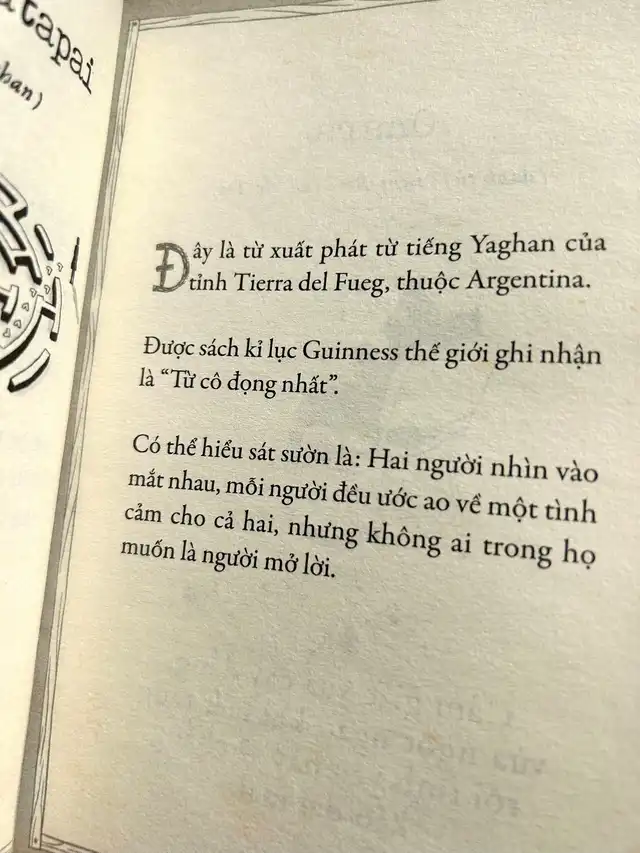 tapai
han)
Đây là từ xuất phát từ tiếng Yaghan của
tỉnh Tierra del Fueg, thuộc Argentina.
Được sách kỉ lục Guinness thế giới ghi nhận
là “Từ cô đọng nhất”.
Có thể hiểu sát sườn là: Hai người nhìn vào
mắt nhau, mỗi người đều ước ao về một tình
cảm cho cả hai, nhưng không ai trong họ
muốn là người mở lời.